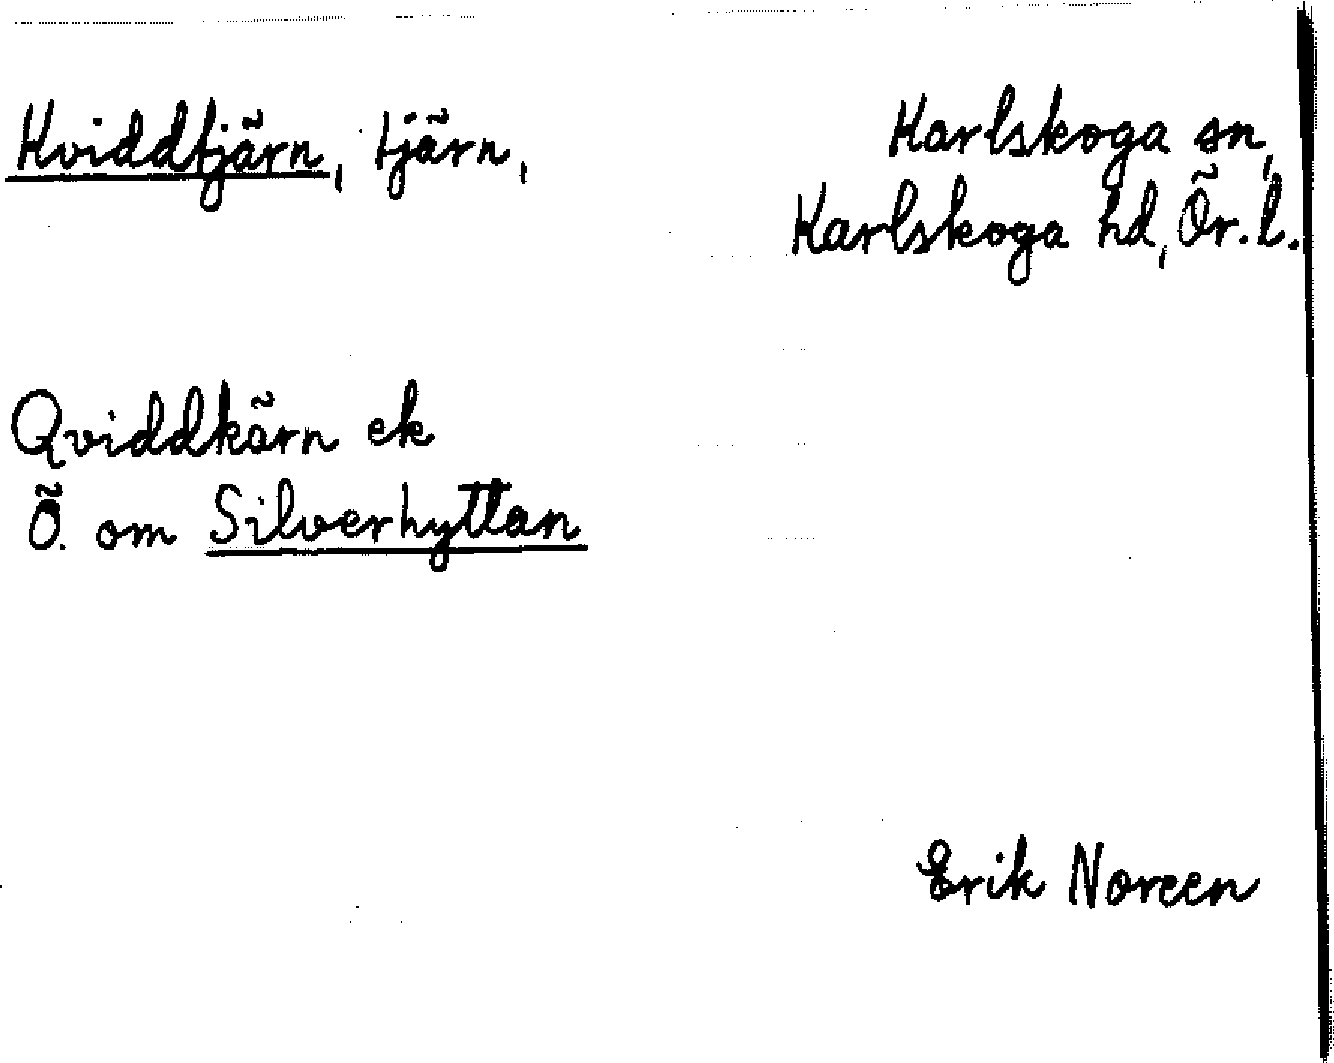 Kviddtjärn, tjärn,
Karlskoga sn,
Karlskoga hd, Ör.l.
Qviddkärn ek
Ö. om Silverhyttan
Erik Noreen